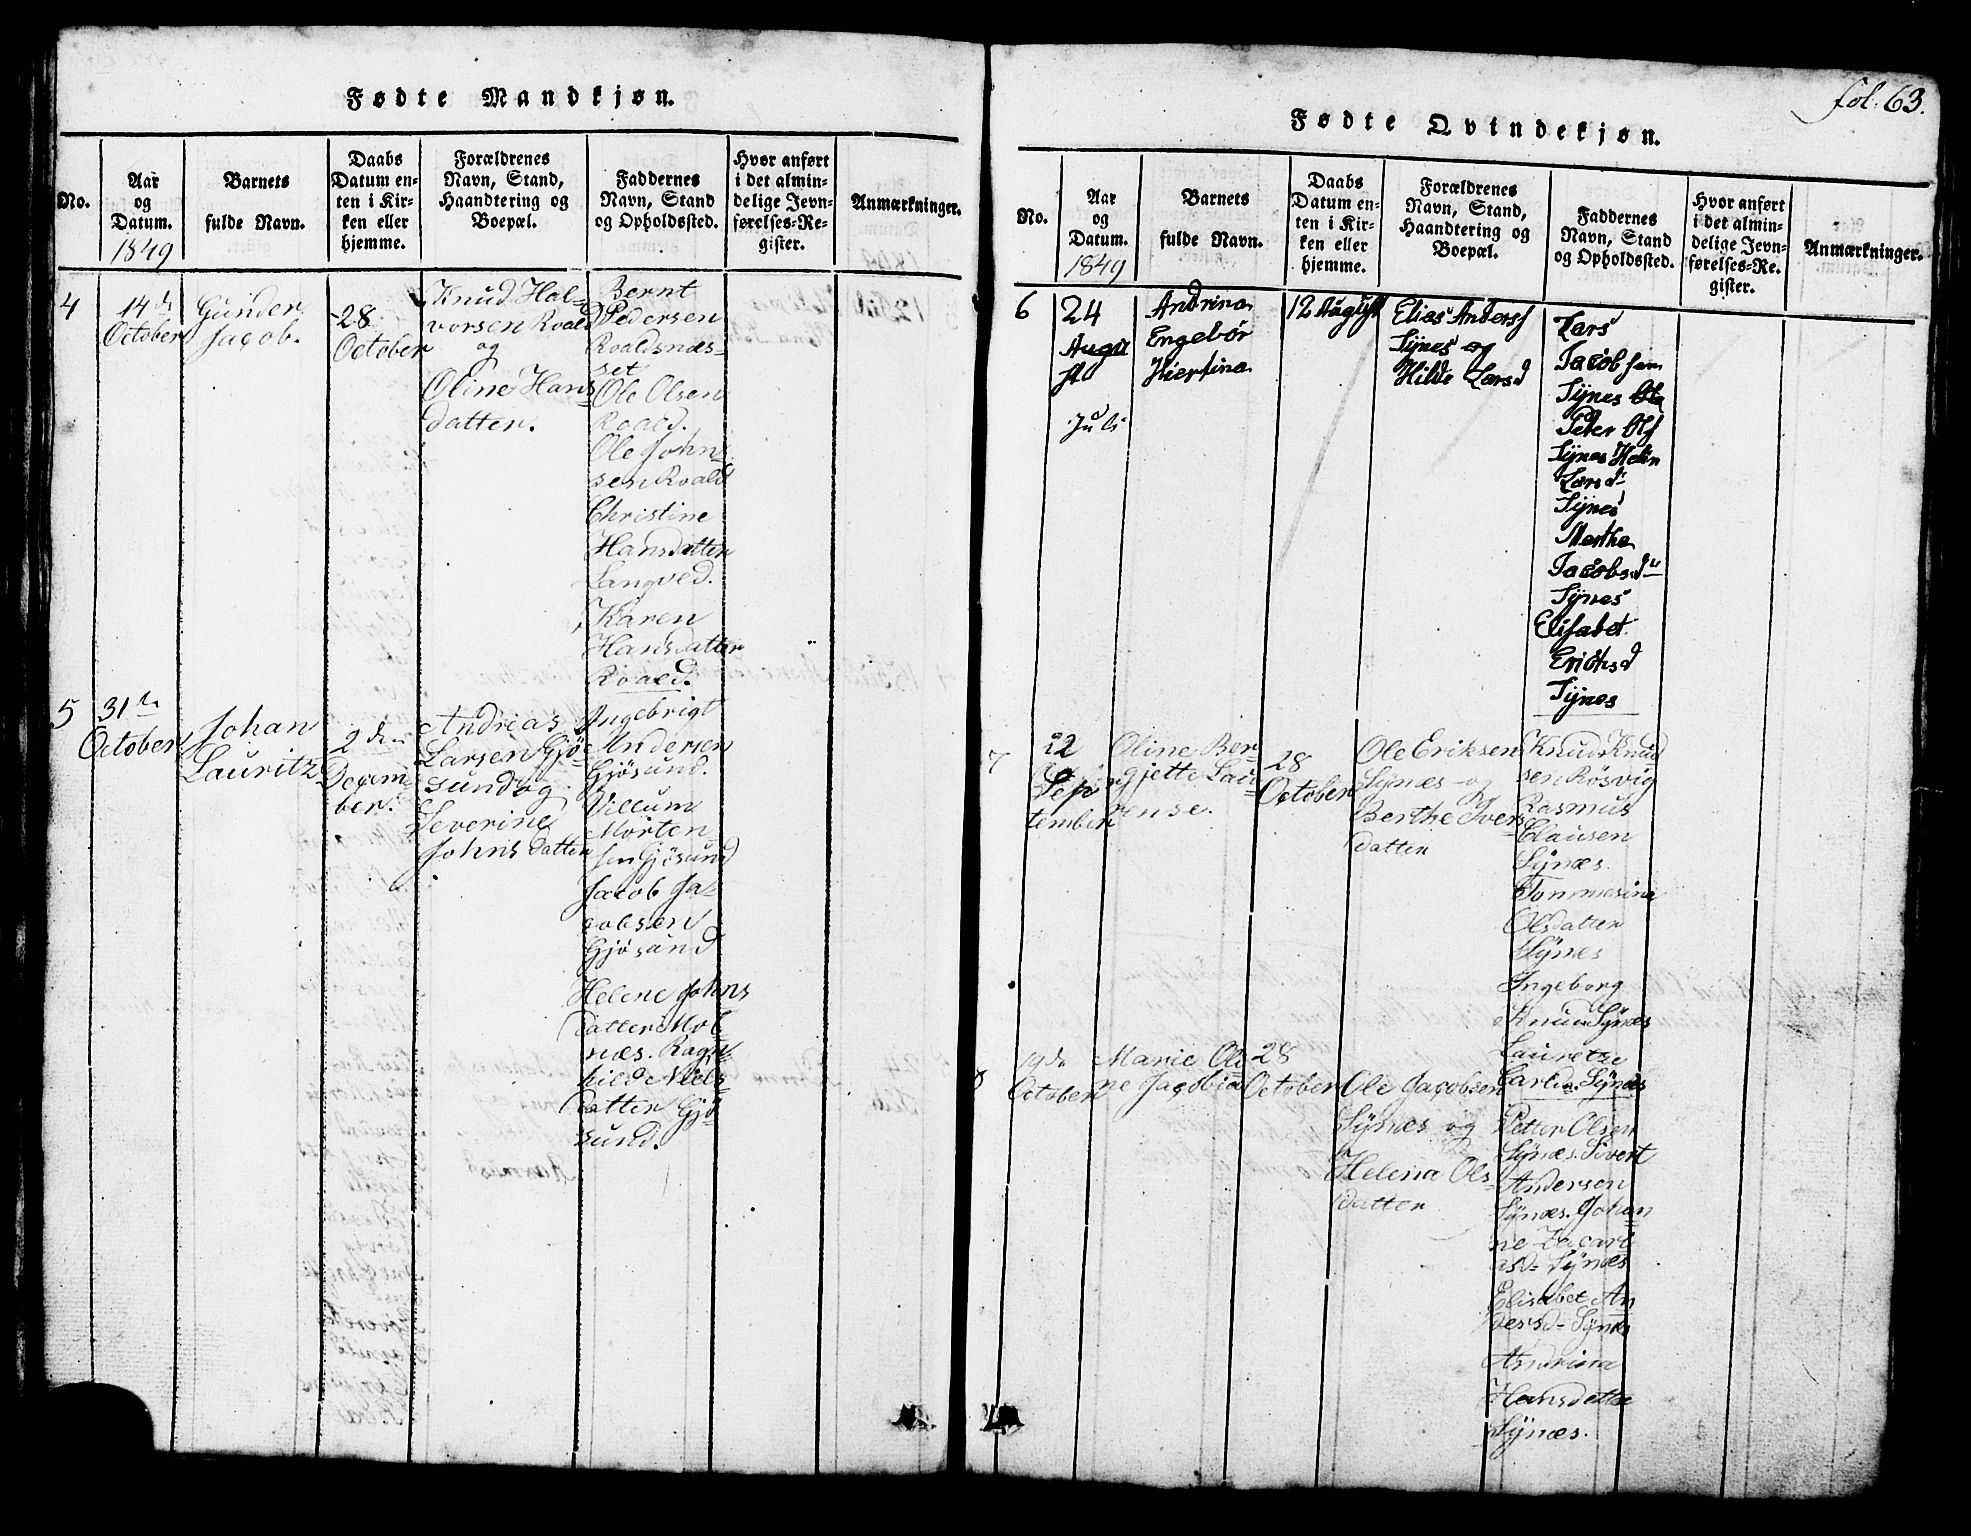 fol. 63.
Fødte Mandkjøn.
No.
Aar
og
Datum.
1849
Barnets
fulde Navn.
Daabs
Datum en-
ten i Kir-
ken eller
hjemme.
Forældrenes
Navn, Stand,
Haandtering og
Boepæl.
Faddernes
Navn, Stand
og Opholdssted.
Hvor anført
i det almin-
delige Jevn-
førelses-Re-
gister.
Anmærkninger.
4
14de
October
Gunder
Jacob.
28
October
Knud Hal-
vorsen Roald
og
Oline Hans
datter.
Bernt
Pedersen
Roaldsnæs-
set
Ole Olsen
Roald.
Ole John
sen Roald
Christine
Hansdatter
Langved.
Karen
Hansdatter
Roald.
5
31te
October
Johan
Lauritz
2de
Decem-
ber.
Andreas
Larsen Gjö-
sund og
Severine
Johnsdatter
Ingebrigt
Andersen
Gjösund.
Villum
Morten-
sen Gjösund
Jacob Ja-
cobsen
Gjösund
Helene Johns
datter Mol
næs. Ragn-
hild Niels-
datter Gjö
sund.
Fødte Qvindekjøn.
No.
Aar
og
Datum.
1849
Barnets
fulde Navn.
Daabs
Datum en-
ten i Kir-
ken eller
hjemme.
Forældrenes
Navn, Stand,
Haandtering og
Boepæl.
Faddernes
Navn, Stand
og Opholdssted.
Hvor anført
i det almin-
delige Jevn-
førelses-Re-
gister.
Anmærkninger.
6
24
Augu
st
Juli
Andrina
Engebør
Hiertina
12 August
Elias Anders
Synes og
Hilde Larsd
Lars
Jacobsen
Synes Ole
Peter Ols
Synes
Larsd
Synes
Merthe
Jacobsd
Synes
Elisabet
Eriksd
Synes
7
22
Sep
tember
Oline Ber
gjette Lau
rense.
28
October
Ole Eriksen
Synes og
Berthe Ivers
datter
Knud Knud
sen Rösvig
Rasmus
Clausen
Synæs.
Tommesine
Olsdatter
Synes
Ingeborg
Knud Synæs
Lauretze
Carld. Synæs
8
19de
October
Marie Oli
ne Jacobia
28
October
Ole Jacobsen
Synæs og
Helena Ols
datter
Petter Olsen
Synæs. Sivert
Andersen
Synæs. Johan
ne Zacari
asd. Synæs
Elisabet An
dersd. Synæs
Andrina
Hansdatter
Synæs.